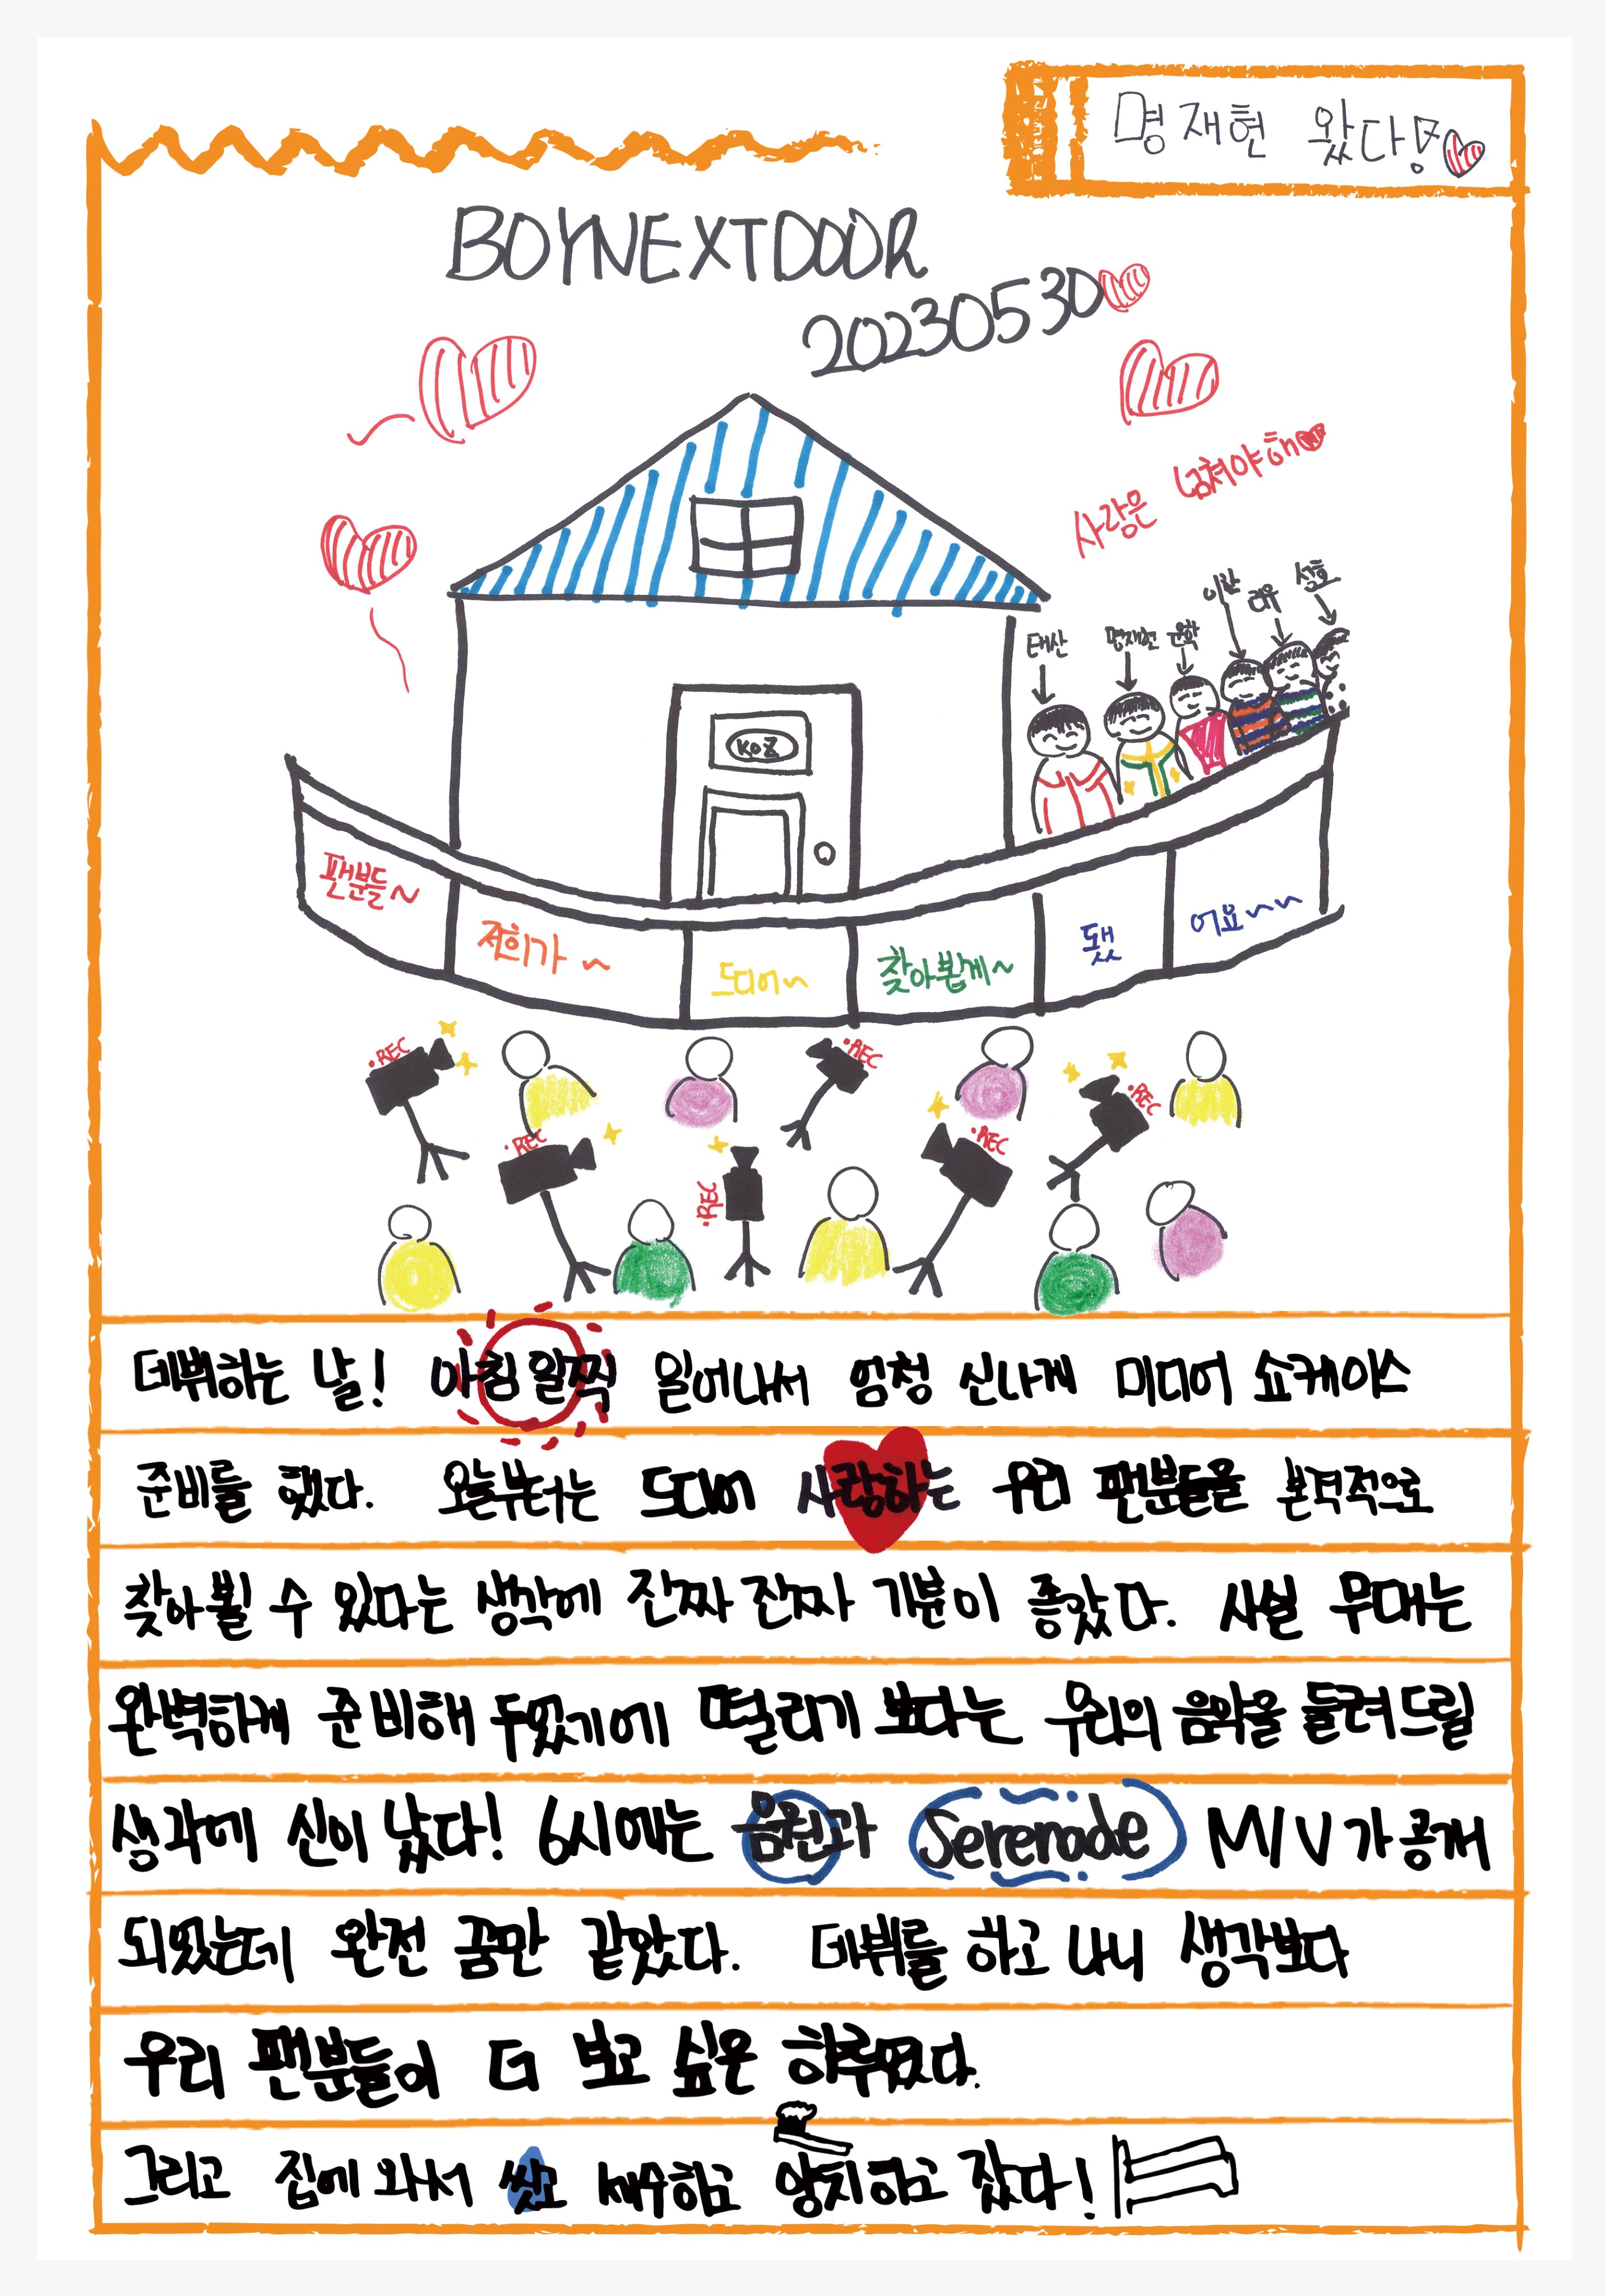 명재현 왔다!
BOYNEXTDOOR
20230530
사랑은 넘쳐야해
태산 명재현 운학 이한 리우 성호
KOZ
팬분들~
저희가~
드디어~
찾아뵙게~
됐
어요~~
·REC
·REC
·REC
·REC
·REC
·REC
데뷔하는 날! 아침 일찍 일어나서 엄청 신나게 미디어 쇼케이스
준비를 했다. 오늘부터는 드디어 사랑하는 우리 팬분들을 본격적으로
찾아뵐 수 있다는 생각에 진짜 진짜 기분이 좋았다. 사실 무대는
완벽하게 준비해 두었기에 떨리기 보다는 우리의 음악을 들려드릴
생각에 신이 났다! 6시에는 음원과 Serenade M/V가 공개
되었는데 완전 꿈만 같았다. 데뷔를 하고 나니 생각보다
우리 팬분들이 더 보고 싶은 하루였다.
그리고 집에 와서 씻고 세수하고 양치하고 잤다!